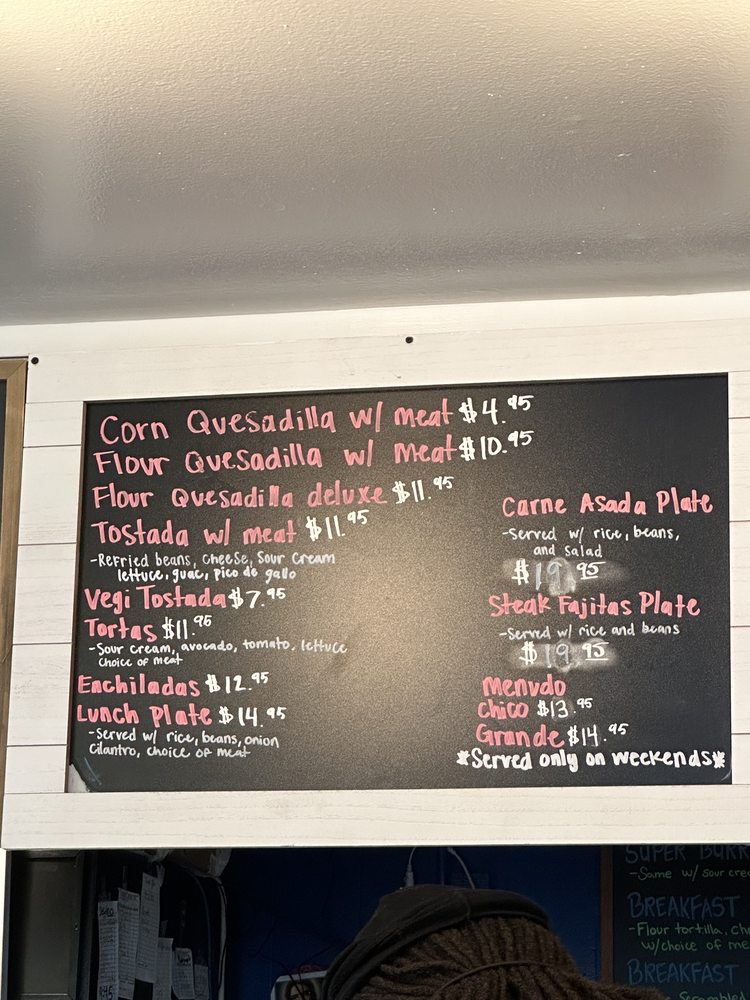 Corn Quesadilla w/ meat $4.95
Flour Quesadilla w/ meat $10.95
Flour Quesadilla deluxe $11.95
Tostada w/ meat $11.95
-Refried beans, cheese, sour cream
lettuce, guac, pico de gallo
Vegi Tostada $7.95
Tortas $11.95
-Sour cream, avocado, tomato, lettuce
choice of meat
Enchiladas $12.95
Lunch Plate $14.95
-Served w/ rice, beans, onion
cilantro, choice of meat
Carne Asada Plate
-Served w/ rice, beans,
and salad
$19.95
Steak Fajitas Plate
-Served w/ rice and beans
$19.95
Menudo
Chico $13.95
Grande $14.95
*Served only on weekends*
SUPER
-Same w/ sour
BREAKFAST
-Flour tortilla,
w/choice of
BREAKFAST